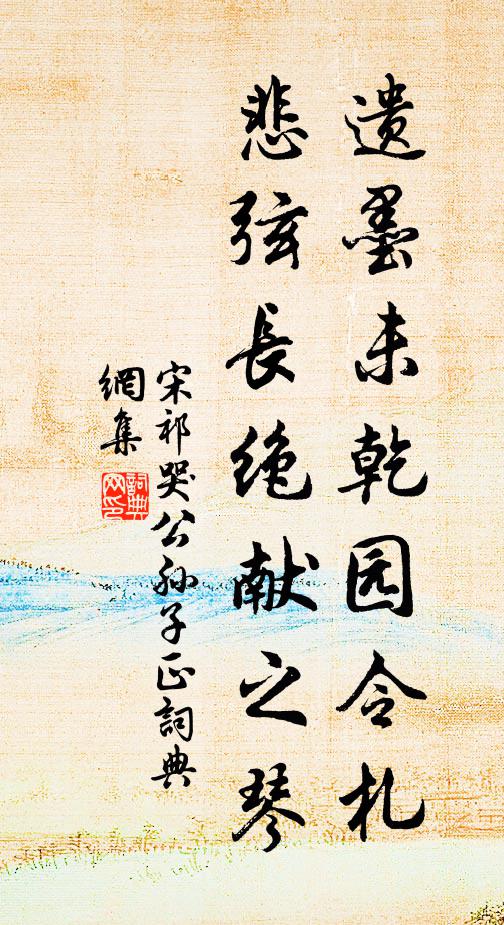 遗墨未乾园令札
悲弦長绝献之琴
宋祁哭公孙子正詞典
網集
詞典
网印